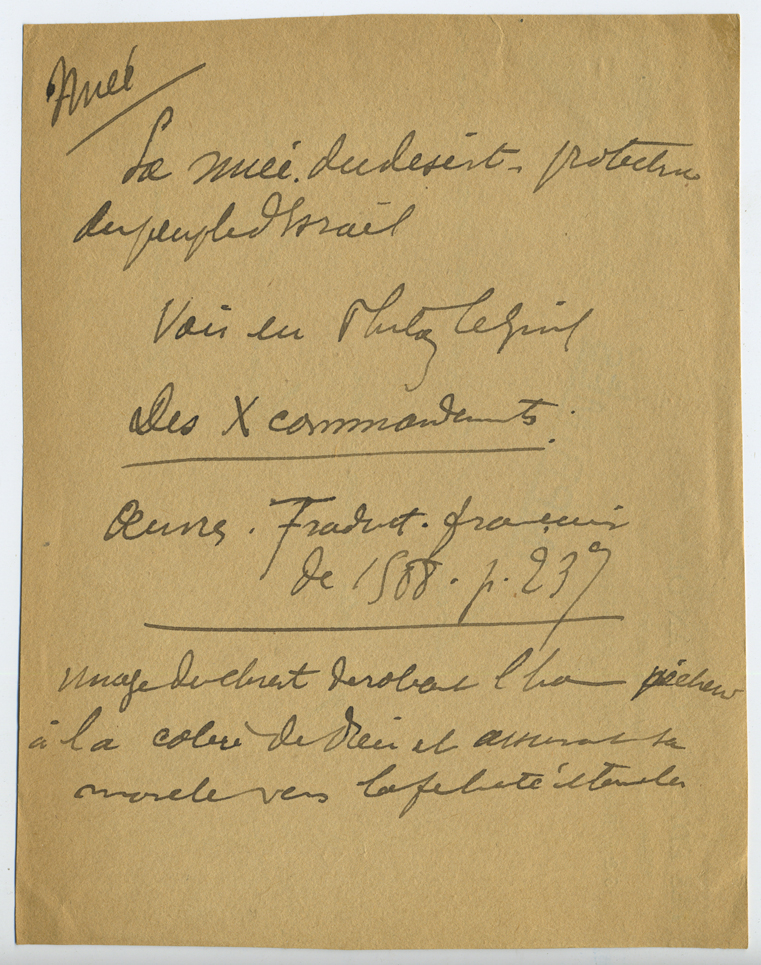 Nuée
La nuée du desert - protection
du peuple d'Israël
Voir en Philon le Juif
Des X commandements.
Œuvres. Traduct. française
de 1588. p. 237
image du christ derobant l'ho pécheur
à la colère de Dieu et assurant sa
marche vers la felicité éternelle